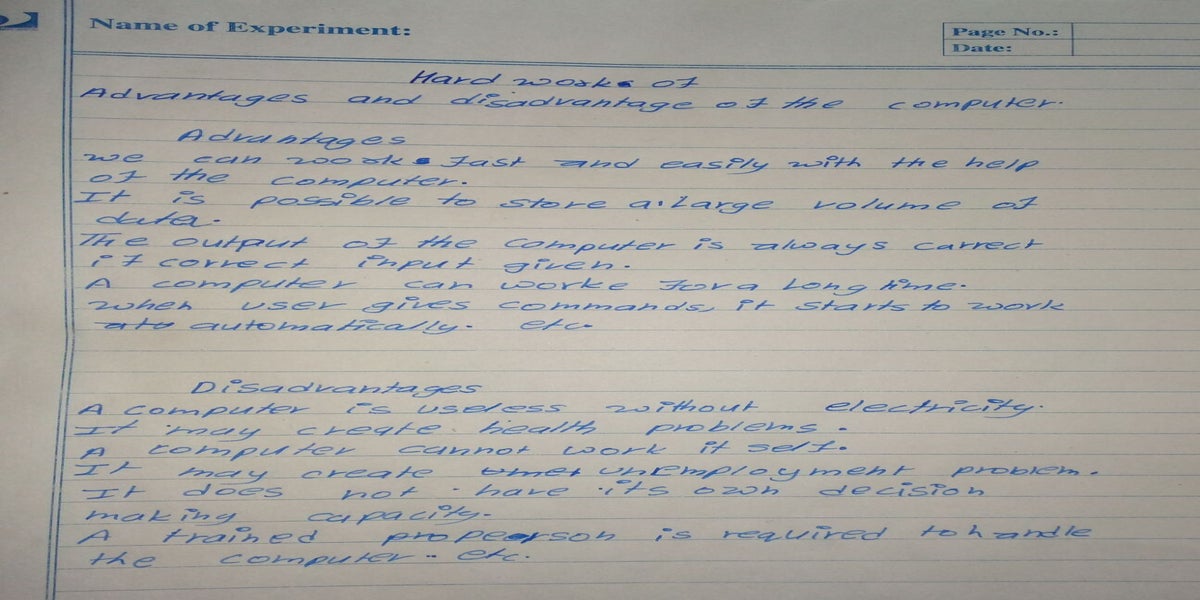 Name of Experiment:
Page No.:
Date:
Hard works of
Advantages and disadvantage of the computer.
Advantages
we can work fast and easily with the help
of the computer.
It is possible to store a large volume of
data.
The output of the computer is always carrect
if correct input given.
A computer can worke for a long time.
when user gives commands, it starts to work
automatically. etc.
Disadvantages
A computer is useless without electricity.
It may create health problems.
A computer cannot work it self.
It may create unemployment problem.
It does not have its own decision
making capacity.
A trained person is required to handle
the computer. etc.